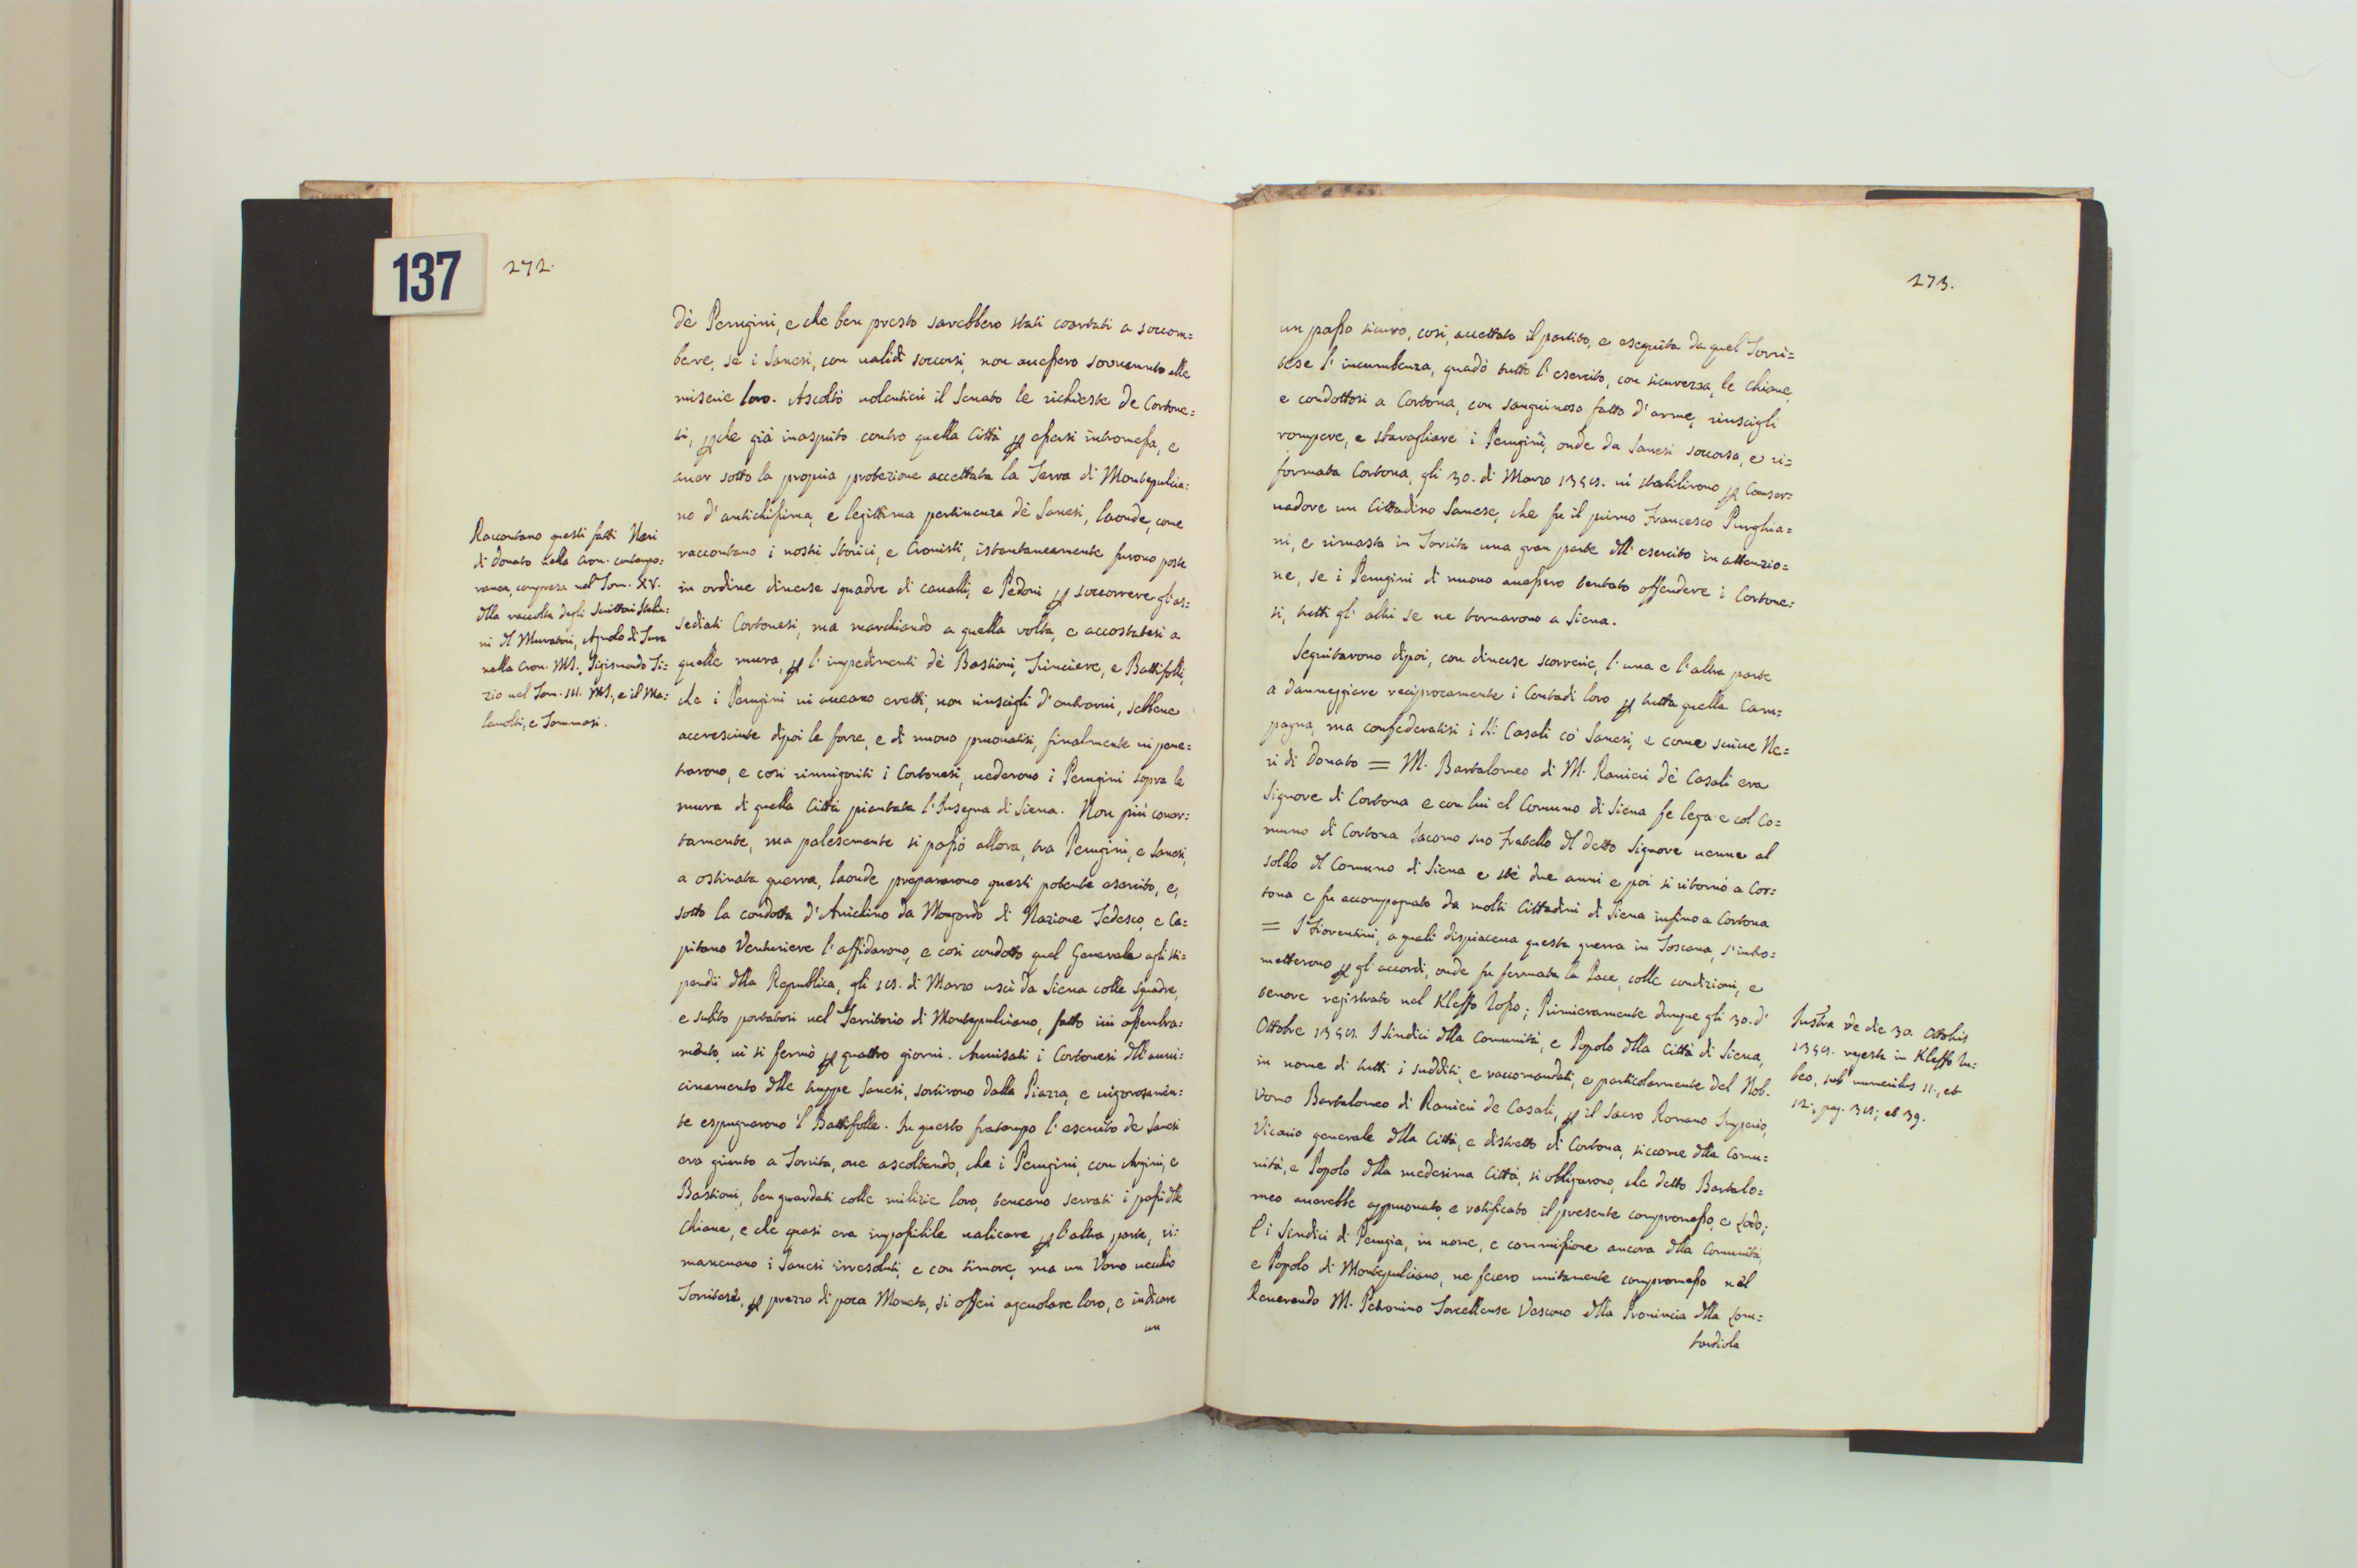 137
272.
dè Perugini, e che ben presto sarebbero stati coartati a soccom=
bere, se i Sanesi, con validi soccorsi, non avessero sovvenuto alle
miserie loro. Ascoltò volentieri il Senato le richieste de Cortone=
si, perche già inasprito contro quella Città per essersi intromessa, e
aver sotto la propria protezione accettata la Terra di Montepulcia=
no d'antichissima, e legittima pertinenza dè Sanesi, laonde, come
raccontano i nostri Storici, e Cronisti, istantaneamente furono poste
in ordine diverse squadre di cavalli, e Pedoni per soccorrere gl'as=
sediati Cortonesi, ma marchiando a quella volta, e accostatesi a
quelle mura, per l'impedimenti dè Bastioni, Trinciere, e Battifolli,
che i Perugini vi aveano eretti, non riuscigli d'entrarvi, sebbene
accresciute dipoi le forze, e di nuovo provatisi, finalmente vi pene=
trarono, e così rinvigoriti i Cortonesi, vederono i Perugini sopra le
mura di quella Città piantata l'Insegna di Siena. Non più cover=
tamente, ma palesemente si passò allora, tra Perugini, e Sanesi,
a ostinata guerra, laonde prepararono questi potente esercito, e,
sotto la condotta d'Anichino da Mongardo di Nazione Tedesco, e Ca=
pitano Venturiere l'affidarono, e così condotto quel Generale agli sti=
pendii dlla Republica, gli 18. di Marzo uscì da Siena colle squadre,
e subito portatosi nel Territorio di Montepulciano, fatto ivi assembra=
mento, vi si fermò per quattro giorni. Avvisati i Cortonesi dll'avvi=
cinamento dlle truppe Sanesi, sortirono dalla Piazza, e vigorosamen=
te espugnarono 'l Battifolle. In questo fratempo l'esercito de Sanesi
era giunto a Torrita, ove ascoltando, che i Perugini, con Argini, e
Bastioni, ben guardati colle milizie loro, teneano serrati i passi dlle
Chiane, e che quasi era impossibile valicare per l'altra parte, ri=
manevano i Sanesi irresoluti, e con timore, ma un Vomo vecchio
Torritese, per prezzo di poca Moneta, si offerì agevolare loro, e indicare
un
Raccontano questi fatti Neri
di Donato nella Cron. contempo=
ranea, compresa nel Tom. XV.
dlla raccolta degli Scrittori Italia=
ni dl Muratori, Agnolo di Tura
nella Cron. MS., Sigismondo Ti=
zio nel Tom. III. MS., e il Ma=
lavolti, e Tommasi.
273.
un passo sicuro, così, accettato il partito, e eseguita da quel Torri=
tese l'incumbenza, guadò tutto l'esercito, con sicurezza, le Chiane,
e condottosi a Cortona, con sanguinoso fatto d'arme, riuscigli
rompere, e sbaragliare i Perugini, onde da Sanesi soccorsa, e ri=
formata Cortona, gli 30. di Marzo 1358. vi stabilirono per Conser=
vadore un Cittadino Sanese, che fu il primo Francesco Purghia=
ni, e rimasta in Torrita una gran parte dll'esercito in attenzio=
ne, se i Perugini di nuovo avessero tentato offendere i Cortone=
si, tutti gl'altri se ne tornarono a Siena.
Seguitarono dipoi, con diverse scorrerie, l'una e l'altra parte
a danneggiare reciprocamente i Contadi loro per tutta quella Cam=
pagna, ma confederatisi i SS: Casali co' Sanesi, e come scrive Ne=
ri di Donato = M. Bartalomeo di M. Ranieri dè Casali era
Signore di Cortona e con lui el Comuno di Siena fe lega e col Co=
muno di Cortona Iacomo suo Fratello dl detto Signore venne al
soldo dl Comuno di Siena e stè due anni e poi si ritornò a Cor=
tona e fu accompagnato da molti Cittadini di Siena infino a Cortona
= I Fiorentini, a quali dispiaceva questa guerra in Toscana, s'intro=
metterono per gl'accordi, onde fu fermata la Pace, colle condizioni, e
tenore registrate nel Kleffo Rosso; Primieramente dunque gli 30. d'
Ottobre 1358. I Sindici dlla Comunità, e Popolo dlla Città di Siena,
in nome di tutti i sudditi, e raccomandati, e particolarmente del Nob.
Vomo Bartalomeo di Ranieri de Casali, per il Sacro Romano Imperio,
Vicario generale dlla Città, e distretto di Cortona, siccome dlla Comu=
nità, e Popolo dlla medesima Città, si obbligarono, che detto Bartalo=
meo averebbe approvato, e ratificato il presente compromesso, e Lodo;
E i Sindici di Perugia, in nome, e commissione ancora dlla Comunità,
e Popolo di Montepulciano, ne fecero unitamente compromesso nel
Reverendo M. Petronino Torcellense Vescovo dlla Provincia dlla Lom=
bardiola
Instra de die 30. Ottobris
1358. regesta in Kleffo Ru=
beo, sub numeribus 11., et
12., pag. 38; et 39.